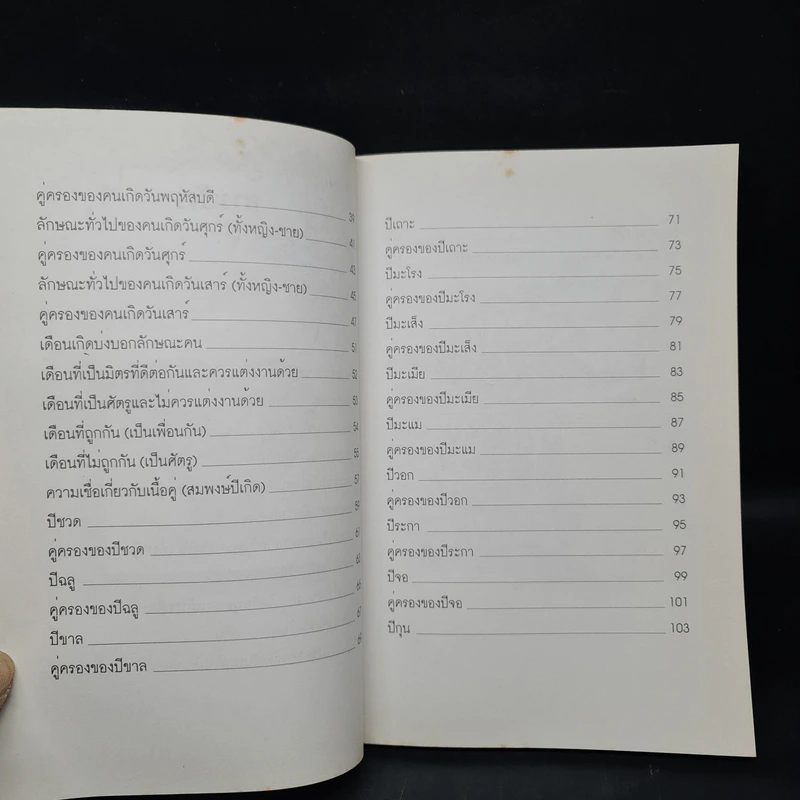 คู่ครองของคนเกิดวันพฤหัสบดี 39
ลักษณะทั่วไปของคนเกิดวันศุกร์ (ทั้งหญิง-ชาย) 41
คู่ครองของคนเกิดวันศุกร์ 43
ลักษณะทั่วไปของคนเกิดวันเสาร์ (ทั้งหญิง-ชาย) 45
คู่ครองของคนเกิดวันเสาร์ 47
เดือนเกิดบ่งบอกลักษณะคน 51
เดือนที่เป็นมิตรที่ดีต่อกันและควรแต่งงานด้วย 52
เดือนที่เป็นศัตรูและไม่ควรแต่งงานด้วย 53
เดือนที่ถูกกัน (เป็นเพื่อนกัน) 54
เดือนที่ไม่ถูกกัน (เป็นศัตรู)
ความเชื่อเกี่ยวกับเนื้อคู่ (สมพงษ์ปีเกิด) 57
ปีชวด 59
คู่ครองของปีชวด 61
ปีฉลู
คู่ครองของปีฉลู
ปีขาล 67
คู่ครองของปีขาล 69
ปีเถาะ 71
คู่ครองของปีเถาะ 73
ปีมะโรง 75
คู่ครองของปีมะโรง 77
ปีมะเส็ง 79
คู่ครองของปีมะเส็ง 81
ปีมะเมีย 83
คู่ครองของปีมะเมีย 85
ปีมะแม 87
คู่ครองของปีมะแม 89
ปีวอก 91
คู่ครองของปีวอก 93
ปีระกา 95
คู่ครองของปีระกา 97
ปีจอ 99
คู่ครองของปีจอ 101
ปีกุน 103